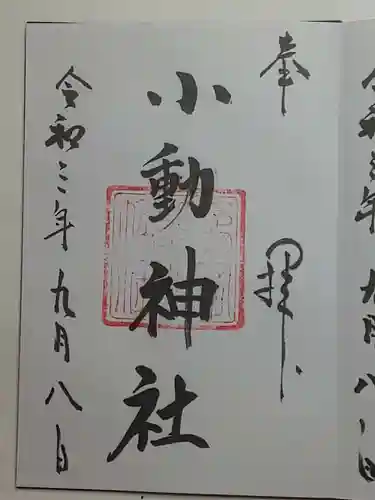 奉拝
小動神社
令和三年九月八日